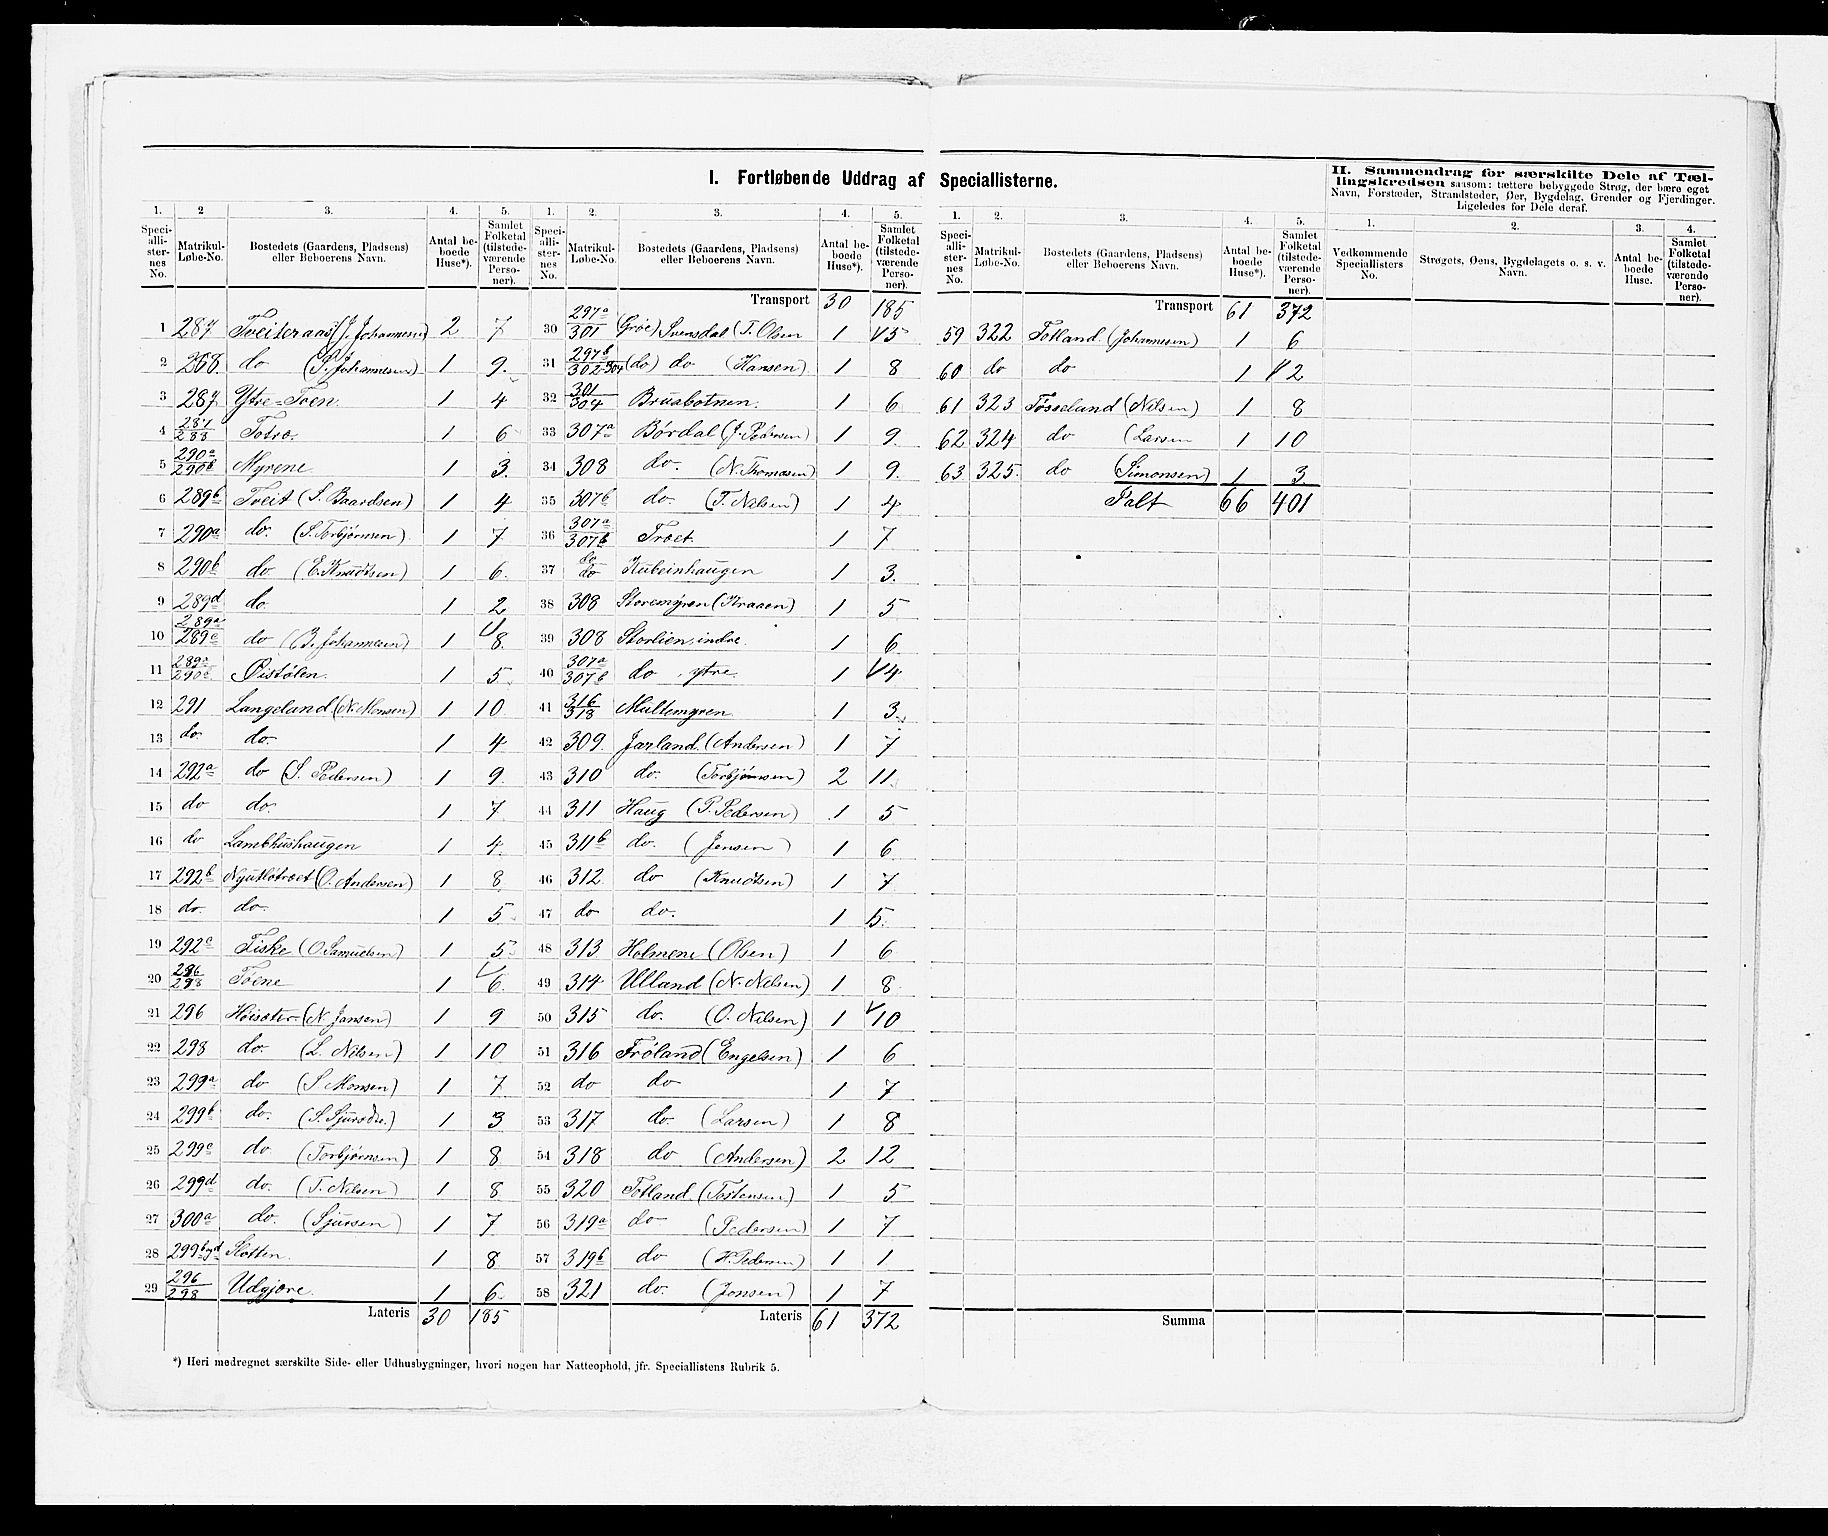 I. Fortløbende Uddrag af Speciallisterne.
1. 2 3. 4. 5.
Speciallisternes No. Matrikul-Løbe-No. Bostedets (Gaardens, Pladsens) eller Beboerens Navn. Antal beboede Huse*). Samlet Folketal (tilstedeværende Personer).
1 287 Tveiteraas (J. Johannesen) 2 7
2 268 do (P. Johannesen) 1 9.
3 287 Ytre-Toen 1 4
4 287/288 Totræ. 1 6
5 290a/290b Myrene 1 3.
6 289b Tveit (S. Baardsen) 1 4
7 290a do. (S. Torbjørnsen) 1 7
8 290b do (E. Knudtsen) 1 6.
9 289d do 1 2
10 289a/289c do (B. Johannesen) 1 8.
11 289a/290c Pistølen. 1 5.
12 291 Langeland (N. Monsen) 1 10
13 do. do. 1 4
14 292a do (S. Pedersen) 1 9.
15 do do. 1 7
16 do Lambhushaugen 1 4.
17 292b (O. Andersen) 1 8
18 do. do. 1 5.
19 292c Fiske (O. Samuelsen) 1 5.
20 296/298 Toene 1 6.
21 296 Høisæter (N. Jansen) 1 9
22 298 do. (L. Nilsen) 1 10
23 299a do (S. Monsen) 1 7
24 299b do. (S. Sjursdtr.) 1 3
25 299c do (Torbjørnsen) 1 8
26 299d do. (T. Nilsen) 1 8
27 300a do. (Sjursen) 1 7
28 299b og d Slotten. 1 8
29 296/298 Udgjøre. 1 6.
Lateris 30 185
1. 2. 3. 4. 5.
Speciallisternes No. Matrikul-Løbe-No. Bostedets (Gaardens, Pladsens) eller Beboerens Navn. Antal beboede Huse*). Samlet Folketal (tilstedeværende Personer).
Transport 30 185
30 297a/301 (Grøe) Svensdal (T. Olsen 1 5
31 297b/302-304 (do) do (Hansen) 1 8
32 301/304 Brusbotnen. 1 6
33 307a Børdal (J. Pedersen) 1 9.
34 308 do. (N. Thomasen) 1 9.
35 307b do. (T. Nilsen) 1 4
36 307a/307b Træet 1 7
37 do/do Kubeinhaugen 1 3.
38 308 Storemyren (Kraaen) 1 5
39 308 Storlien, indre 1 6
40 307a/307b do ytre. 1 4
41 316/318 Multemyren 1 3.
42 309. Jarland. (Andersen) 1 7
43 310 do. (Torbjørnsen) 2 11.
44 311 Haug (P. Pedersen) 1 5
45 311b do. (Jensen) 1 6
46 312. do (Knudtsen) 1 7
47 do do. 1 5.
48 313 Holmene (Olsen) 1 6
49 314 Ulland (N. Nilsen) 1 8
50 315 do. (O. Nilsen) 1 10
51 316 Frøland (Engelsen) 1 6
52 do do 1 7
53 317 do. (Larsen) 1 8
54 318 do (Andersen) 2 12
55 320 Totland. (Tostensen) 1 5
56 319a do (Pedersen) 1 7
57 319b do (H. Pedersen) 1 1
58 321 do. (Jonsen) 1 7
Lateris 61 372
1. 2. 3. 4. 5.
Speciallisternes No. Matrikul-Løbe-No. Bostedets (Gaardens, Pladsens) eller Beboerens Navn. Antal beboede Huse*). Samlet Folketal (tilstedeværende Personer).
Transport 61 372
59 322 Totland. (Johannesen) 1 6
60 do do 1 2
61 323 Tøsseland (Nilsen) 1 8
62 324 do (Larsen 1 10
63 325. do (Simonsen) 1 3
Talt 66 401
Summa
II. Sammendrag for særskilte Dele af Tællingskredsen saasom: tættere bebyggede Strøg, der bære eget Navn, Forstæder, Strandsteder, Øer, Bygdelag, Grender og Fjerdinger. Ligeledes for Dele deraf.
1. 2. 3. 4.
Vedkommende Speciallisters No. Strøgets, Øens, Bygdelagets o. s. v. Navn. Antal beboede Huse. Samlet Folketal (tilstedeværende Personer).
*) Heri medregnet særskilte Side- eller Udhusbygninger, hvori nogen har Natteophold, jfr. Speciallistens Rubrik 5.